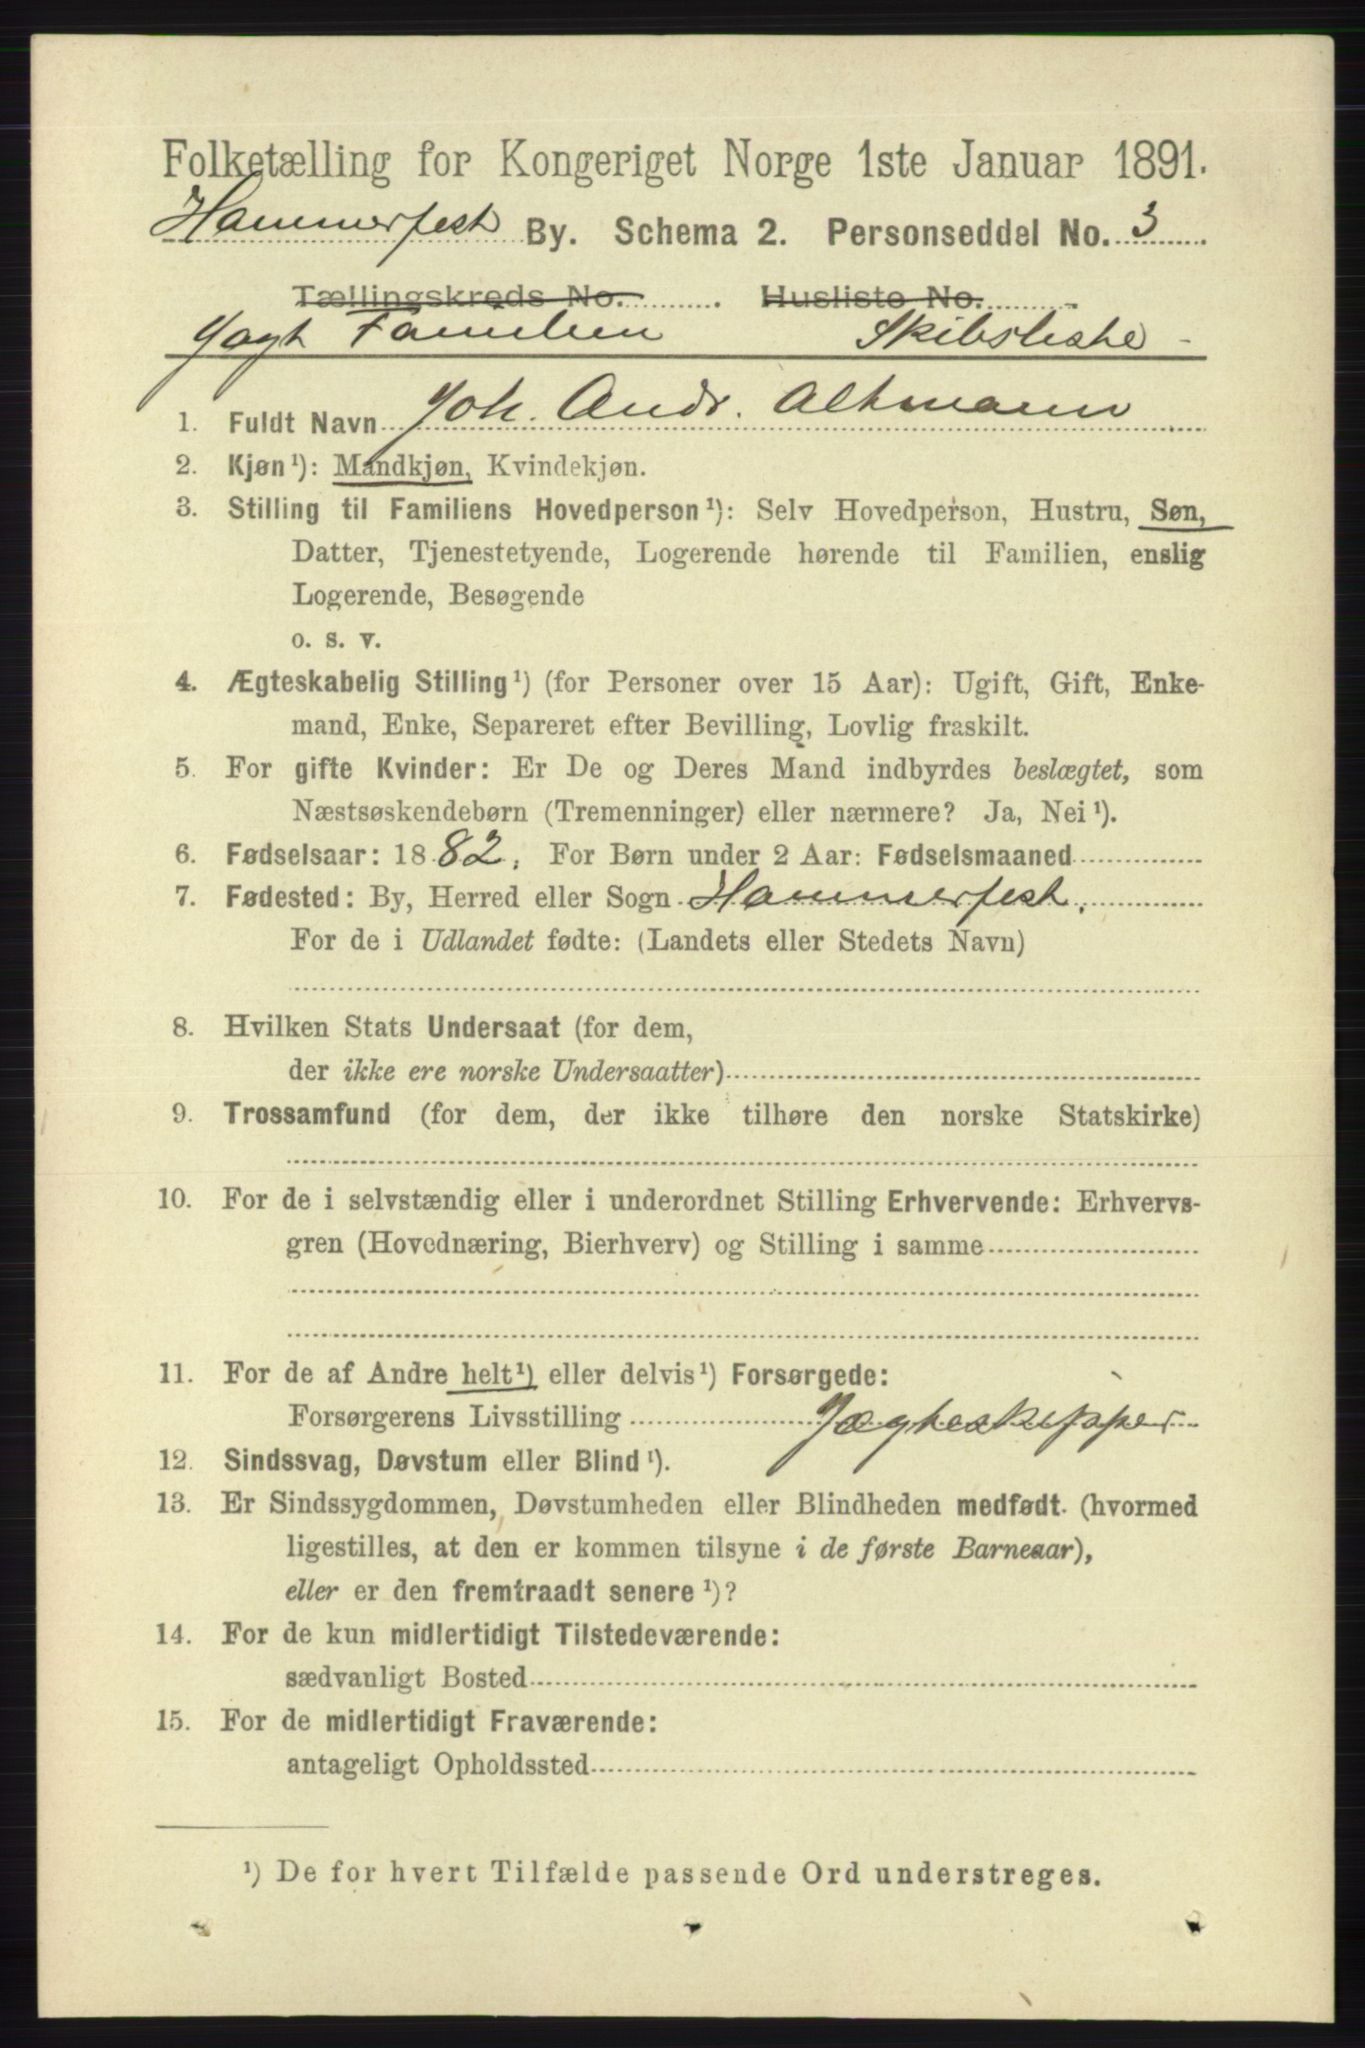 Folketælling for Kongeriget Norge 1ste Januar 1891.
Hammerfest By. Schema 2. Personseddel No. 3
Tællingskreds No. . Husliste No. .
Jagt Familien Skibsliste
1. Fuldt Navn Joh. Andr. Altmann
2. Kjøn¹): Mandkjøn, Kvindekjøn.
3. Stilling til Familiens Hovedperson¹): Selv Hovedperson, Hustru, Søn,
Datter, Tjenestetyende, Logerende hørende til Familien, enslig
Logerende, Besøgende
o. s. v.
4. Ægteskabelig Stilling¹) (for Personer over 15 Aar): Ugift, Gift, Enke-
mand, Enke, Separeret efter Bevilling, Lovlig fraskilt.
5. For gifte Kvinder: Er De og Deres Mand indbyrdes beslægtet, som
Næstsøskendebørn (Tremenninger) eller nærmere? Ja, Nei¹).
6. Fødselsaar: 1882. For Børn under 2 Aar: Fødselsmaaned
7. Fødested: By, Herred eller Sogn Hammerfest.
For de i Udlandet fødte: (Landets eller Stedets Navn)
8. Hvilken Stats Undersaat (for dem,
der ikke ere norske Undersaatter)
9. Trossamfund (for dem, der ikke tilhøre den norske Statskirke)
10. For de i selvstændig eller i underordnet Stilling Erhvervende: Erhvervs-
gren (Hovednæring, Bierhverv) og Stilling i samme
11. For de af Andre helt¹) eller delvis¹) Forsørgede:
Forsørgerens Livsstilling Jægteskipper
12. Sindssvag, Døvstum eller Blind¹).
13. Er Sindssygdommen, Døvstumheden eller Blindheden medfødt (hvormed
ligestilles, at den er kommen tilsyne i de første Barneaar),
eller er den fremtraadt senere¹)?
14. For de kun midlertidigt Tilstedeværende:
sædvanligt Bosted
15. For de midlertidigt Fraværende:
antageligt Opholdssted
¹) De for hvert Tilfælde passende Ord understreges.